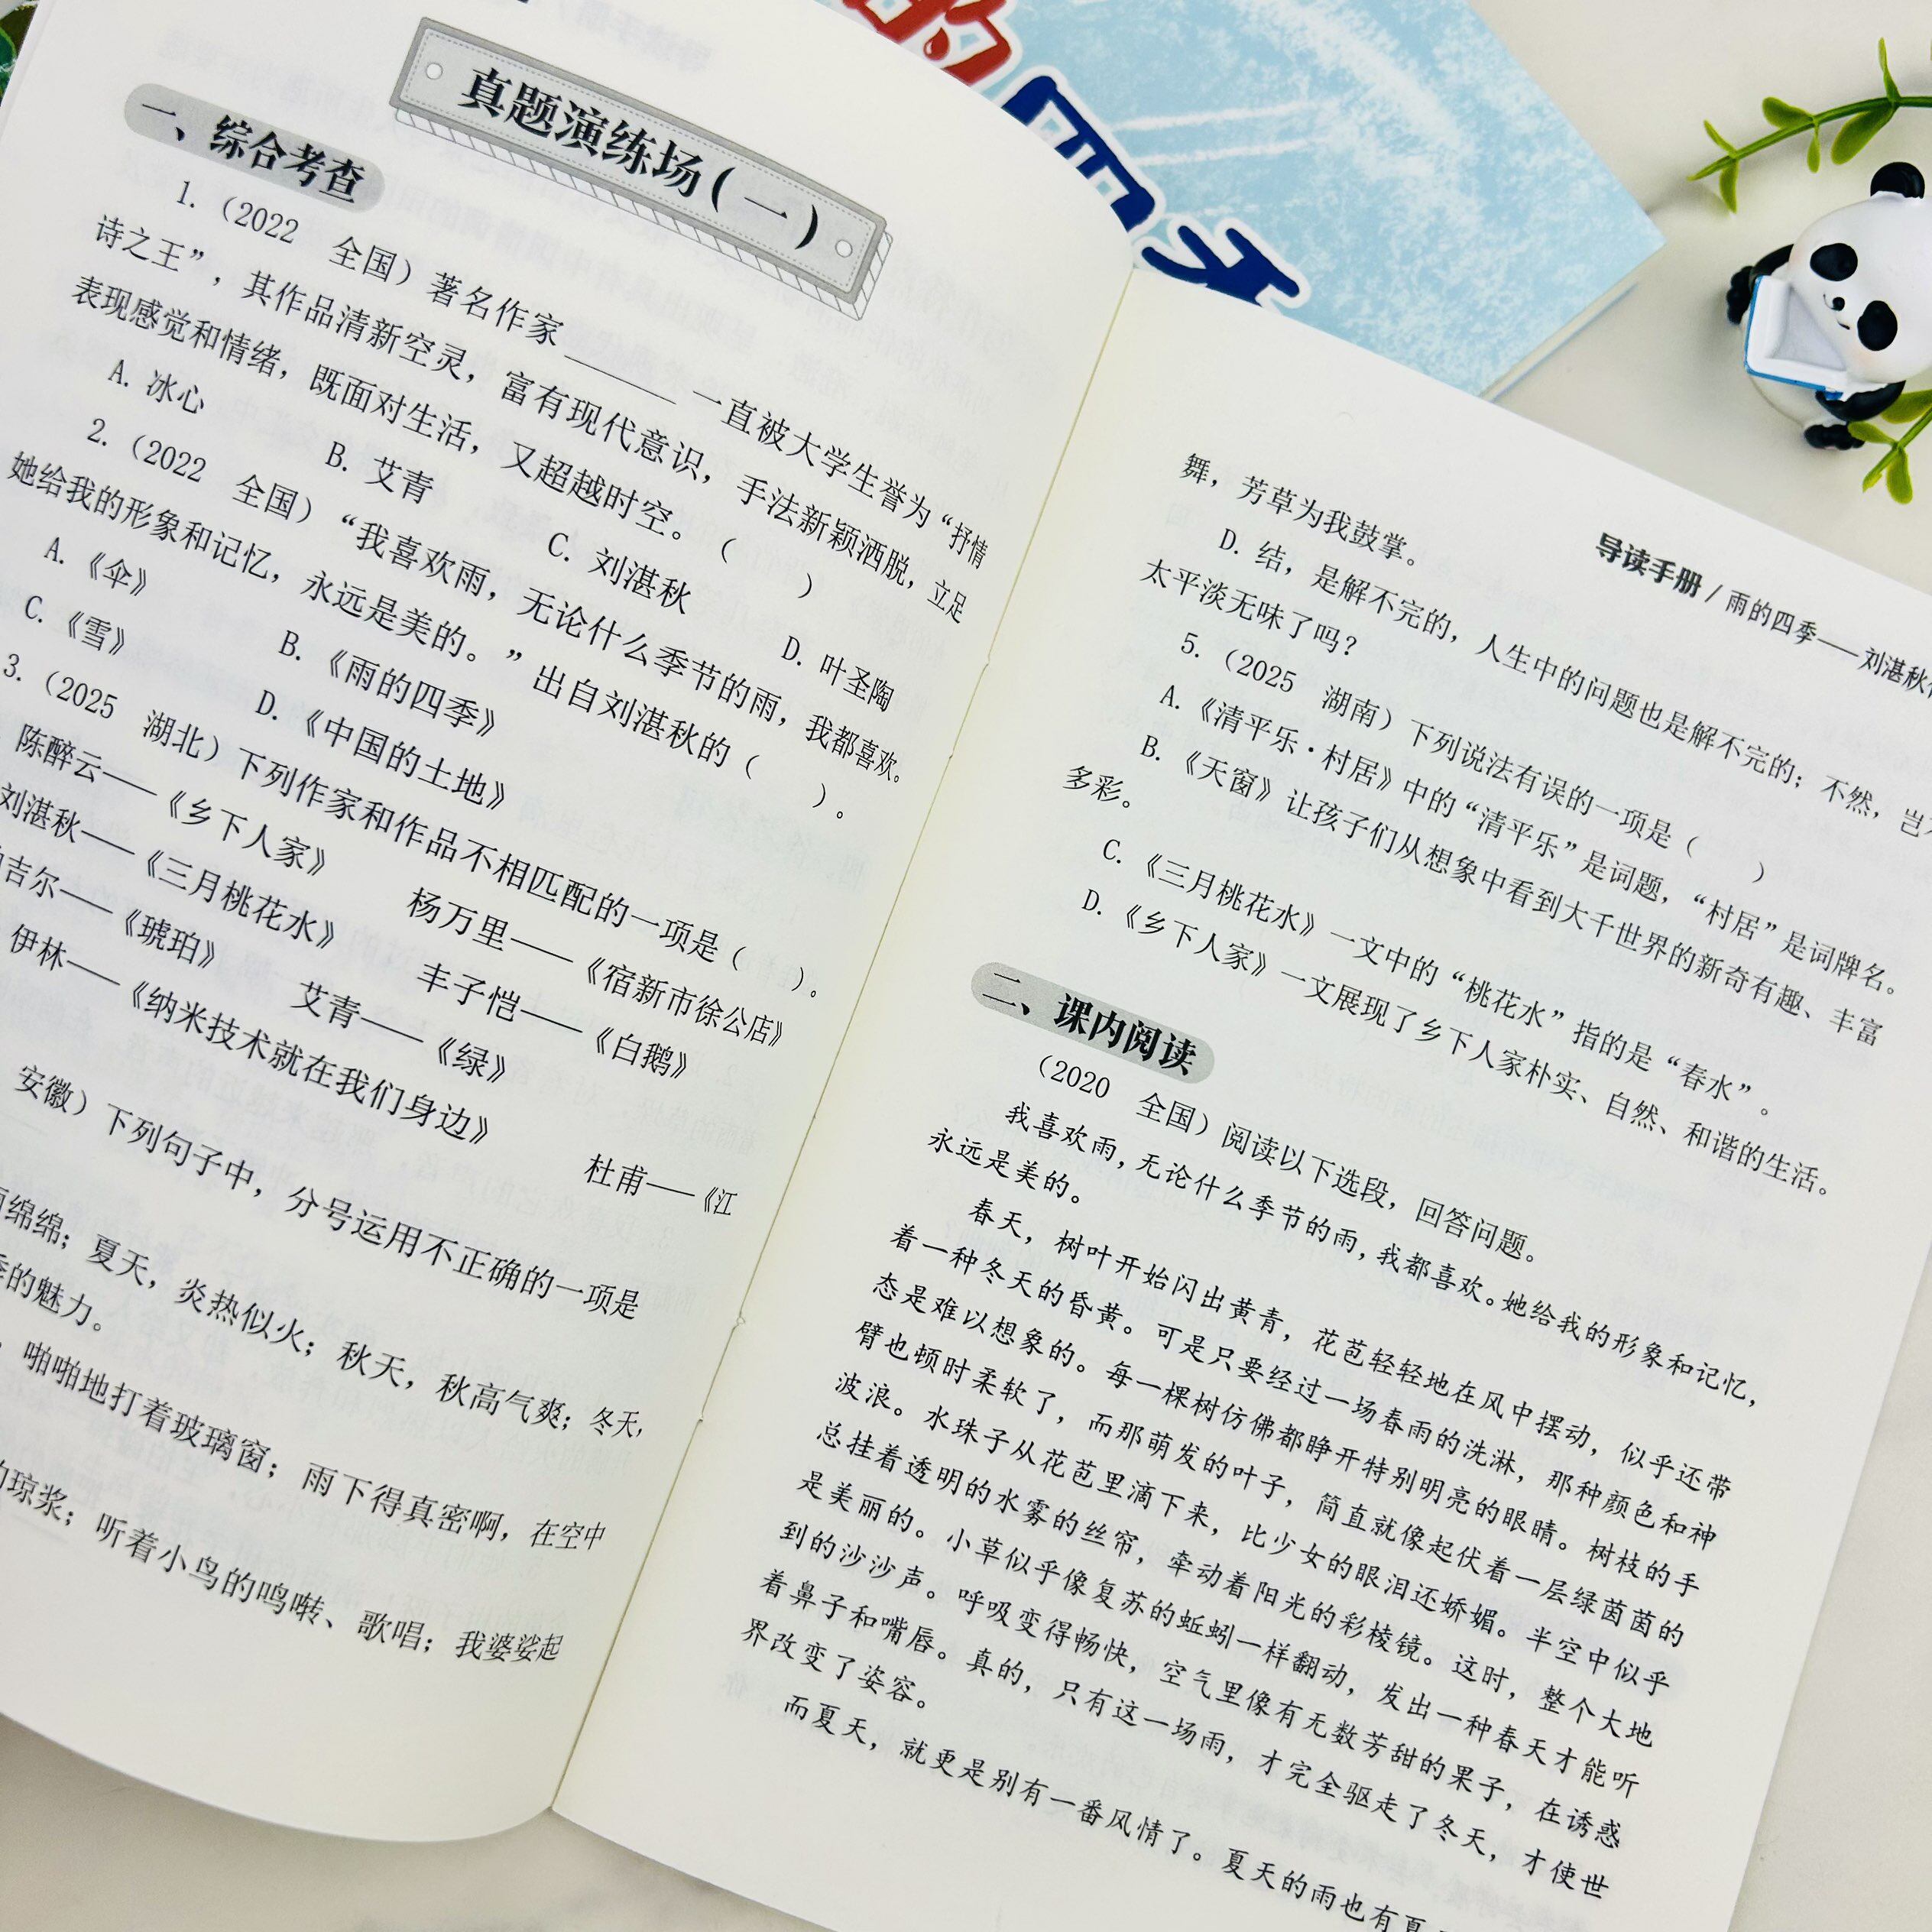 真题演练场(一)
一、综合考查
1.（2022 全国）著名作家______一直被大学生誉为“抒情
诗之王”，其作品清新空灵，富有现代意识，手法新颖洒脱，立足
表现感觉和情绪，既面对生活，又超越时空。（ ）
A. 冰心 B. 艾青 C. 刘湛秋 D. 叶圣陶
2.（2022 全国）“我喜欢雨，无论什么季节的雨，我都喜欢。
她给我的形象和记忆，永远是美的。”出自刘湛秋的（ ）。
A.《伞》 B.《雨的四季》
C.《雪》 D.《中国的土地》
3.（2025 湖北）下列作家和作品不相匹配的一项是（ ）。
陈醉云——《乡下人家》 杨万里——《宿新市徐公店》
刘湛秋——《三月桃花水》 丰子恺——《白鹅》
吉尔——《琥珀》 艾青——《绿》
伊林——《纳米技术就在我们身边》 杜甫——《江
安徽）下列句子中，分号运用不正确的一项是
绵绵；夏天，炎热似火；秋天，秋高气爽；冬天，
的魅力。
啪啪地打着玻璃窗；雨下得真密啊，在空中
琼浆；听着小鸟的鸣啭、歌唱；我婆娑起
导读手册 / 雨的四季——刘湛秋
舞，芳草为我鼓掌。
D. 结，是解不完的，人生中的问题也是解不完的；不然，岂
太平淡无味了吗？
5.（2025 湖南）下列说法有误的一项是（ ）
A.《清平乐·村居》中的“清平乐”是词题，“村居”是词牌名。
B.《天窗》让孩子们从想象中看到大千世界的新奇有趣、丰富
多彩。
C.《三月桃花水》一文中的“桃花水”指的是“春水”。
D.《乡下人家》一文展现了乡下人家朴实、自然、和谐的生活。
二、课内阅读
（2020 全国）阅读以下选段，回答问题。
我喜欢雨，无论什么季节的雨，我都喜欢。她给我的形象和记忆，
永远是美的。
春天，树叶开始闪出黄青，花苞轻轻地在风中摆动，似乎还带
着一种冬天的昏黄。可是只要经过一场春雨的洗淋，那种颜色和神
态是难以想象的。每一棵树仿佛都睁开特别明亮的眼睛。树枝的手
臂也顿时柔软了，而那萌发的叶子，简直就像起伏着一层绿茵茵的
波浪。水珠子从花苞里滴下来，比少女的眼泪还娇媚。半空中似乎
总挂着透明的水雾的丝帘，牵动着阳光的彩棱镜。这时，整个大地
是美丽的。小草似乎像复苏的蚯蚓一样翻动，发出一种春天才能听
到的沙沙声。呼吸变得畅快，空气里像有无数芳甜的果子，在诱惑
着鼻子和嘴唇。真的，只有这一场雨，才完全驱走了冬天，才使世
界改变了姿容。
而夏天，就更是别有一番风情了。夏天的雨也有夏